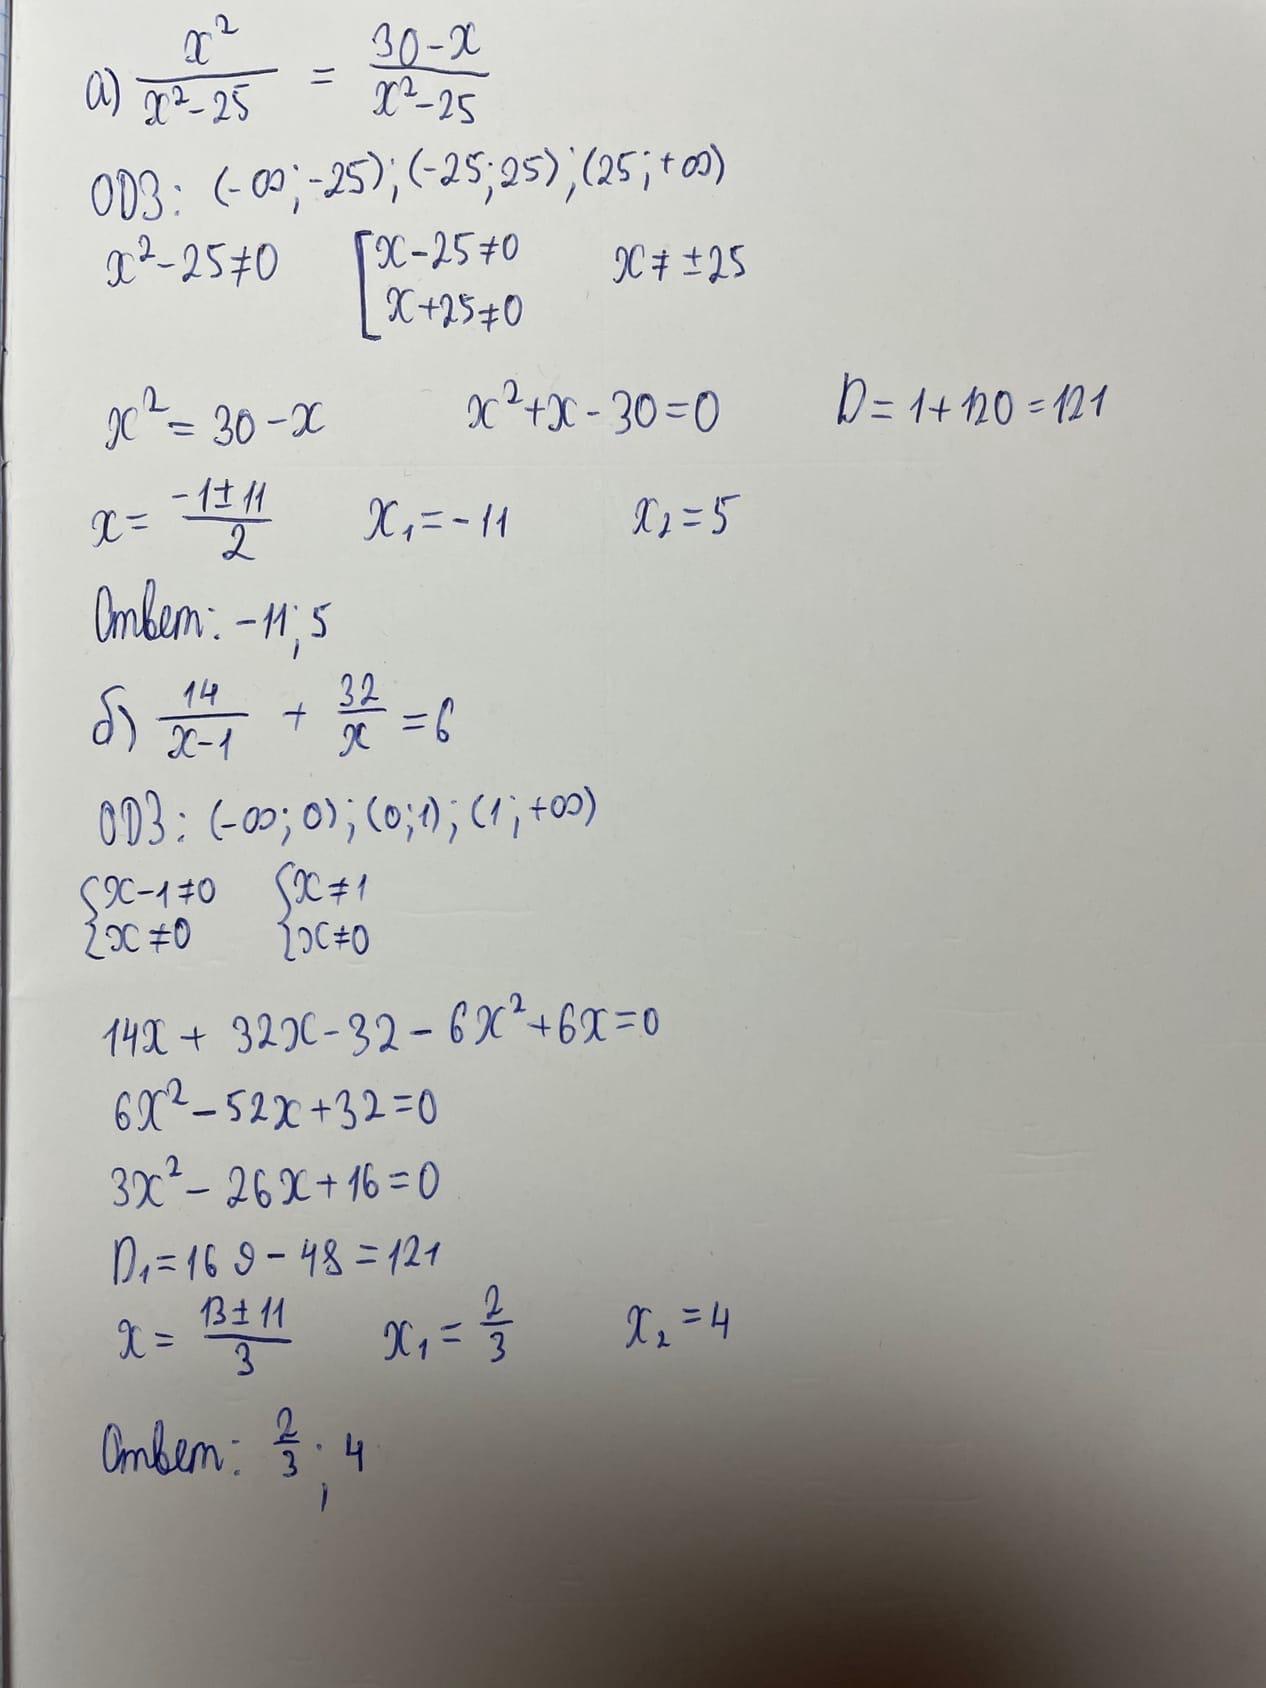 а) x²/(x²-25) = (30-x)/(x²-25)
ОДЗ: (-∞;-25);(-25;25);(25;+∞)
x²-25≠0 [x-25≠0 x+25≠0 x≠±25
x²=30-x x²+x-30=0 D=1+120=121
x=(-1±11)/2 x₁=-11 x₂=5
Ответ: -11;5
б) 14/(x-1) + 32/x =6
ОДЗ: (-∞;0);(0;1);(1;+∞)
{x-1≠0 x≠0 {x≠1 x≠0
14x+32x-32-6x²+6x=0
6x²-52x+32=0
3x²-26x+16=0
D₁=169-48=121
x=(13±11)/3 x₁=2/3 x₂=4
Ответ: 2/3;4